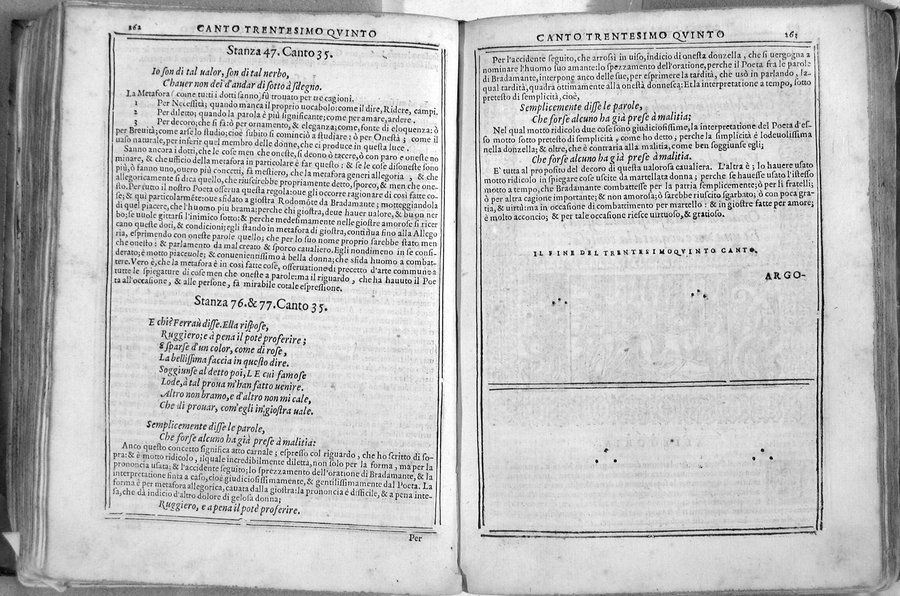 262
CANTO TRENTESIMO QVINTO
Stanza 47. Canto 35.
Io son di tal ualor, son di tal nerbo,
C'hauer non dei d'andar di sotto à sdegno.
La Metafora (come tutti i dotti sanno) fù trouato per tre cagioni.
1 Per Necessità; quando manca il proprio uocabolo: come il dire, Ridere, campi.
2 Per diletto; quando la parola è più significante; come per amare, ardere.
3 Per decoro; che si fà: ò per ornamento, & eleganza; come, fonte di eloquenza: ò
per Breuità; come arse lo studio; cioè subito si cominciò a studiare: ò per Onestà; come il
uaso naturale, per inferir quel membro delle donne, che ci produce in questa luce.
Sanno ancora i dotti, che le cose men che oneste, si deono ò tacere, ò con paro e oneste no
minare, & che ufficio della metafora in particolare è far questo: & se le cose disoneste sono
più, ò fanno uno, ouero più concetti, fà mestieri, che la metafora generi allegoria, & che
allegoricamente si dica quello, che riuscirebbe propriamente detto, sporco, & men che one-
sto. Per tuto il nostro Poeta osserua questa regola: oue gli occorre ragionare di cosi fatte co-
se; & qui particolarmẽte: oue sfidato a giostra Rodomõte da Bradamante; motteggiandola
di quel piacere, che l'huomo più brama: perche chi giostra, deue hauer ualore, & buon ner
bo; se uuole gittarsi l'inimico sotto: & perche medesimamente nelle giostre amorose si ricer
cano queste doti, & condicioni; egli stando in metafora di giostra, continua fino alla Allego
ria, esprimendo con oneste parole quello; che per lo suo nome proprio sarebbe stato men
che onesto: & parlamento da mal creato & sporco caualiero. Egli nondimeno in se consi-
derato; è motto piaceuole; & conuenientissimo à bella donna; che sfida huomo a combat-
tere. Vero è, che la metafora è in cosi fatte cose, osseruatione di precetto d'arte commune a
tutte le spiegature di cose men che oneste a parole: ma il riguardo, che ha hauuto il Poe
ta all'occasione, & alle persone, fà mirabile cotale espressione.
Stanza 76. & 77. Canto 35.
E chi? Ferraù disse. Ella rispose,
Ruggiero; e à pena il potè proferire;
E sparse d'un color, come di rose,
La bellissima faccia in questo dire.
Soggiunse al detto poi, LE cui famose
Lode, à tal proua m'han fatto uenire.
Altro non bramo, e d'altro non mi cale,
Che di prouar, com'egli in giostra uale.
Semplicemente disse le parole,
Che forse alcuno ha già prese à malitia:
Anco questo concetto significa atto carnale; espresso col riguardo, che ho scritto di so-
pra: & è motto ridicolo, ilquale incredibilmente diletta, non solo per la forma, ma per la
prononcia usata: & l'accidente seguito; lo sprezzamento dell'oratione di Bradamante, & la
interpretatione finta a caso, cioè giudiciosissimamente, & gentilissimamente dal Poeta. La
forma è per metafora allegorica, cauata dalla giostra: la prononcia è difficile, & a pena inte-
sa, che dà indicio d'altro dolore di gelosa donna;
Ruggiero, e a pena il potè proferire.
Per
CANTO TRENTESIMO QVINTO
263
Per l'accidente seguito, che arrossì in uiso, indicio di onesta donzella, che si uergogna a
nominare l'huomo suo amante: lo sprezzamento dell'oratione, perche il Poeta fra le parole
di Bradamante, interpone anco delle sue, per esprimere la tardità, che usò in parlando, la-
qual tardità, quadra ottimamente alla onesta donnesca: Et la interpretatione a tempo, sotto
pretesto di semplicità, cioè,
Semplicemente disse le parole,
Che forse alcuno ha già prese à malitia;
Nel qual motto ridicolo due cose sono giudiciosissime, la interpretatione del Poeta d'es-
so motto sotto pretesto di semplicità, come ho detto; perche la simplicità è lodeuolissima
nella donzella; & oltre, che è contraria alla malitia, come ben soggiunse egli;
Che forse alcuno ha già prese à malitia.
E' tutta al proposito del decoro di questa ualorosa caualiera. L'altra è; lo hauere usato
motto ridicolo in spiegare cose uscite da martellata donna; perche se hauesse usato l'istesso
motto a tempo, che Bradamante combattesse per la patria semplicemente; ò per li fratelli;
ò per altra cagione importante; & non amorosa; ò sarebbe riuscito sgarbato; ò con poca gra-
tia, & uirtù: ma in occasione di combattimento per martello: & in giostre fatte per amore;
è molto acconcio; & per tale occasione riesce uirtuoso, & gratioso.
IL FINE DEL TRENTESIMOQVINTO CANTO.
ARGO-